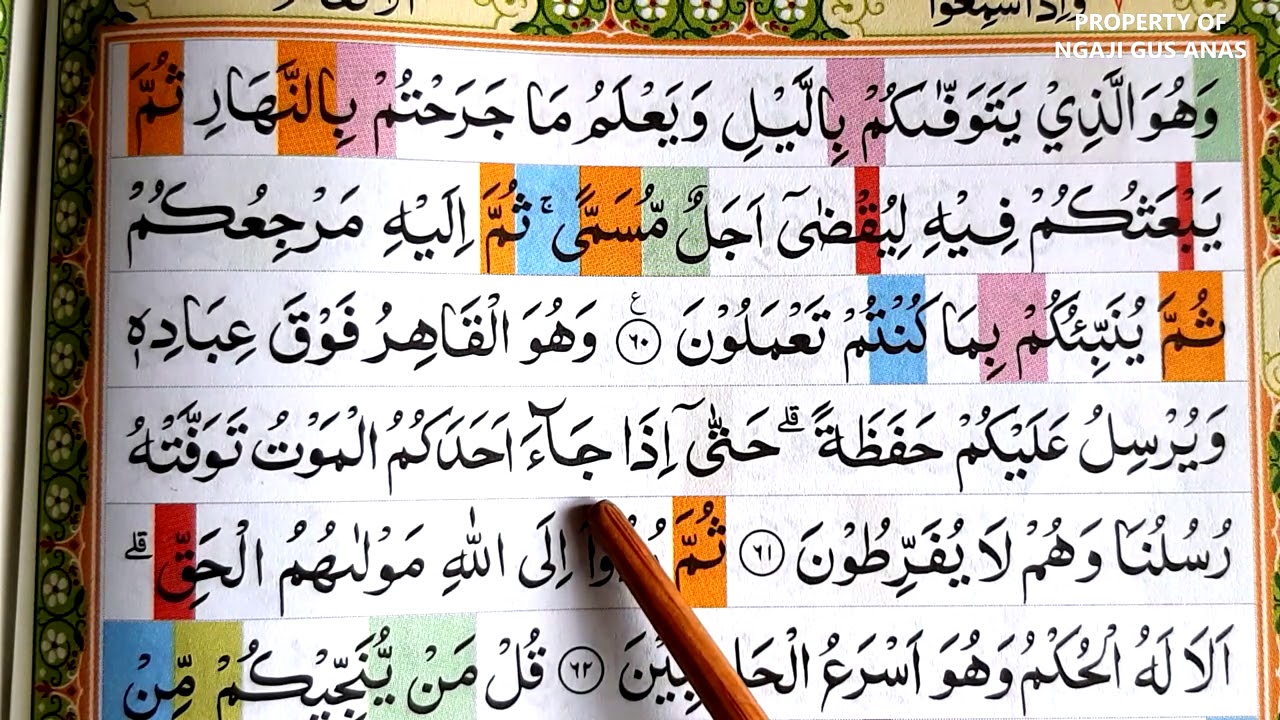 وَإِذَا سَمِعُوا
PROPERTY OF
NGAJI GUS ANAS
وَهُوَ الَّذِيْ يَتَوَفّٰىكُمْ بِالَّيْلِ وَيَعْلَمُ مَا جَرَحْتُمْ بِالنَّهَارِ ثُمَّ
يَبْعَثُكُمْ فِيْهِ لِيُقْضٰٓى اَجَلٌ مُّسَمًّىۚ ثُمَّ اِلَيْهِ مَرْجِعُكُمْ
ثُمَّ يُنَبِّئُكُمْ بِمَا كُنْتُمْ تَعْمَلُوْنَ ࣖ ٦٠ وَهُوَ الْقَاهِرُ فَوْقَ عِبَادِهٖ
وَيُرْسِلُ عَلَيْكُمْ حَفَظَةً ۗ حَتّٰىٓ اِذَا جَاۤءَ اَحَدَكُمُ الْمَوْتُ تَوَفَّتْهُ
رُسُلُنَا وَهُمْ لَا يُفَرِّطُوْنَ ٦١ ثُمَّ اِلَى اللّٰهِ مَوْلٰىهُمُ الْحَقِّ ۗ
اَلَا لَهُ الْحُكْمُ وَهُوَ اَسْرَعُ ٦٢ قُلْ مَنْ يُّنَجِّيْكُمْ مِّنْ